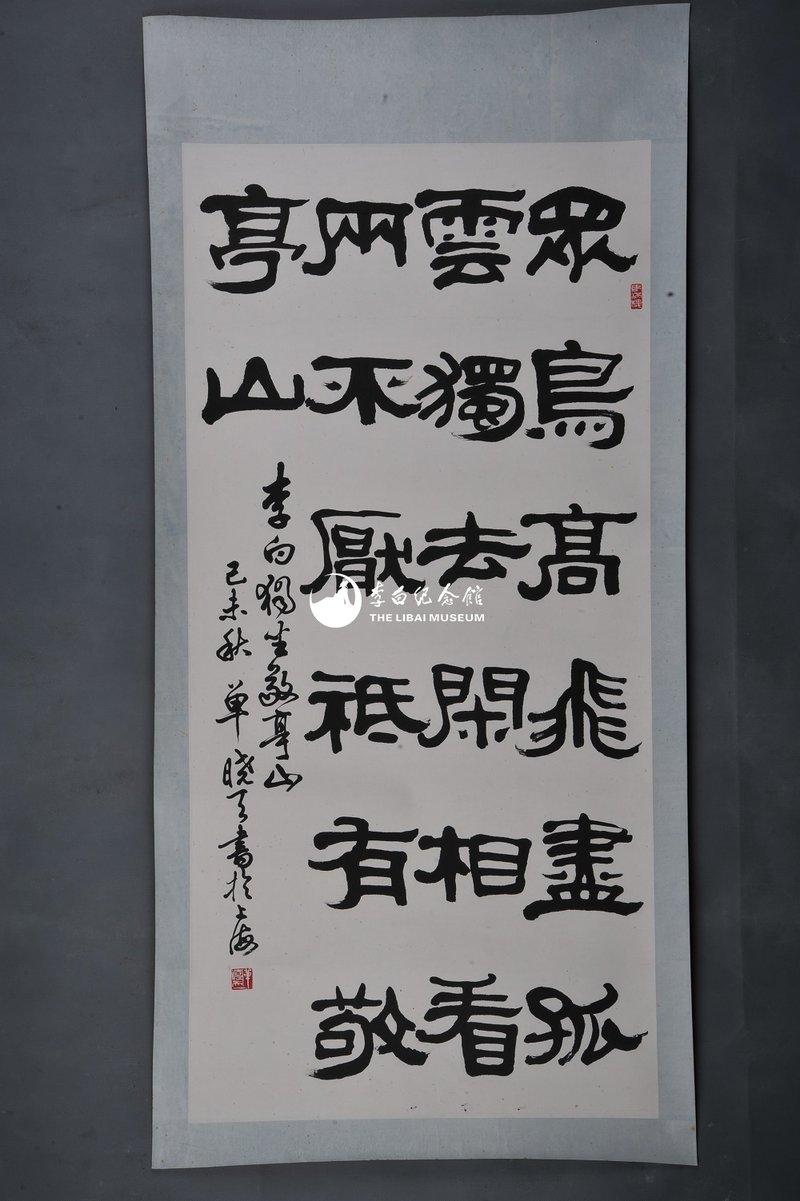 眾鳥高飛盡孤
雲獨去閑相看
兩不厭祗有敬
亭山
李白獨坐敬亭山
己未秋 單曉天書於上海
李白纪念馆
THE LIBAI MUSEUM